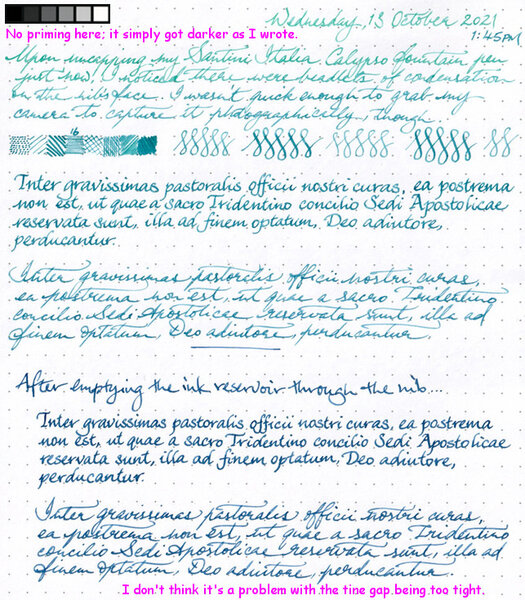 Wednesday, 13 October 2021
No priming here; it simply got darker as I wrote.
1:45PM
Upon uncapping my Santini Italia Calypso fountain pen
just now, I noticed there were beadlets of condensation
on the nib's face. I wasn't quick enough to grab my
camera to capture it photographically, though...
16
Inter gravissimas pastoralis officii nostri curas, ea postrema
non est, ut quae a sacro Tridentino concilio Sedi Apostolicae
reservata sunt, illa ad finem optatum, Deo adiutore,
perducantur.
Inter gravissimas pastoralis officii nostri curas,
ea postrema non est, ut quae a sacro Tridentino
concilio Sedi Apostolicae reservata sunt, illa ad
finem optatum, Deo adiutore, perducantur.
After emptying the ink reservoir through the nib...
Inter gravissimas pastoralis officii nostri curas, ea postrema
non est, ut quae a sacro Tridentino concilio Sedi Apostolicae
reservata sunt, illa ad finem optatum, Deo adiutore,
perducantur.
Inter gravissimas pastoralis officii nostri curas,
ea postrema non est, ut quae a sacro Tridentino
concilio Sedi Apostolicae reservata sunt, illa ad
finem optatum, Deo adiutore, perducantur.
I don't think it's a problem with the tine gap being too tight.